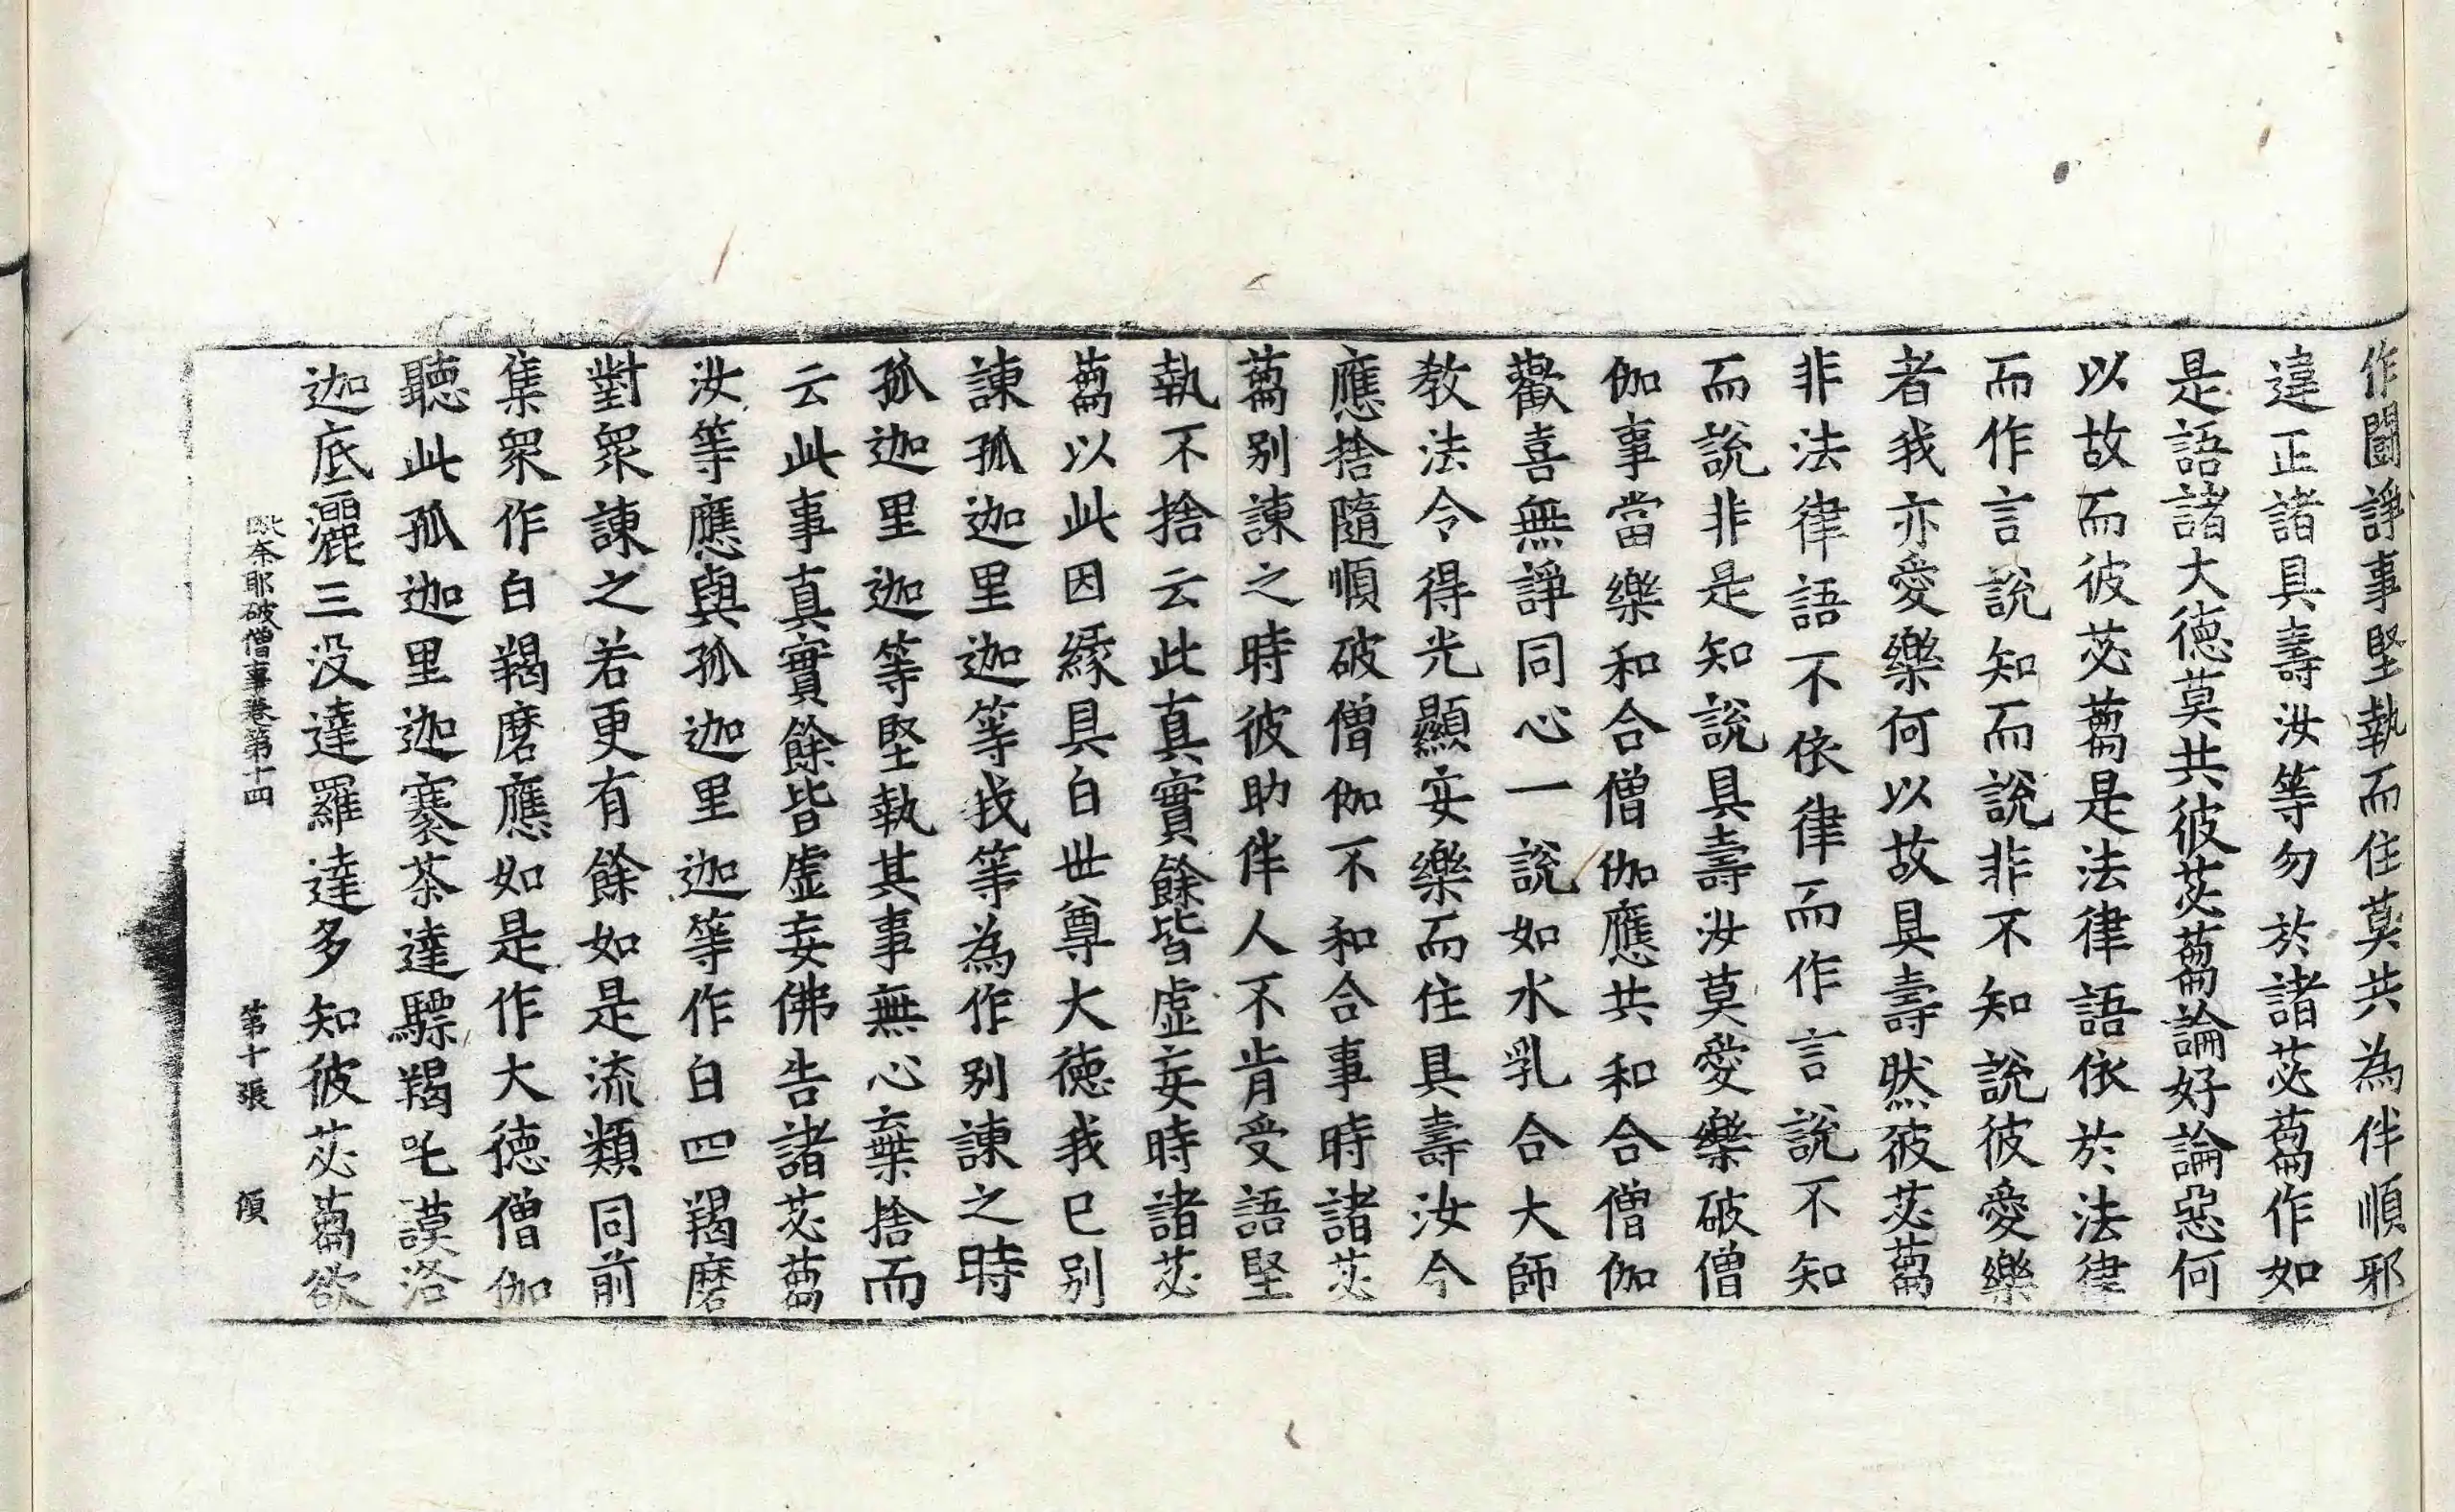 作闘諍事堅執而住莫共為伴順邪
違正諸具壽汝等勿於諸苾蒭作如
是語諸大德莫共彼苾蒭論好論惡何
以故而彼苾蒭是法律語依於法律
而作言說知而說非不知說彼愛樂
者我亦愛樂何以故具壽然彼苾蒭
非法律語不依律而作言說不知
而說非是知說具壽汝莫愛樂破僧
伽事當樂和合僧伽應共和合僧伽
歡喜無諍同心一說如水乳合大師
教法令得光顯安樂而住具壽汝今
應捨隨順破僧伽不和合事時諸苾
蒭別諫之時彼助伴人不肯受語堅
執不捨云此真實餘皆虛妄時諸苾
蒭以此因緣具白世尊大德我已別
諫孤迦里迦等我等為作別諫之時
孤迦里迦等堅執其事無心棄捨而
云此事真實餘皆虛妄佛告諸苾蒭
汝等應與孤迦里迦等作白四羯磨
對眾諫之若更有餘如是流類同前
集眾作白羯磨應如是作大德僧伽
聽此孤迦里迦褰荼達驃羯吒謨洛
迦底灑三没達羅達多知彼苾蒭欲
奈耶破僧事卷第十四　第十張